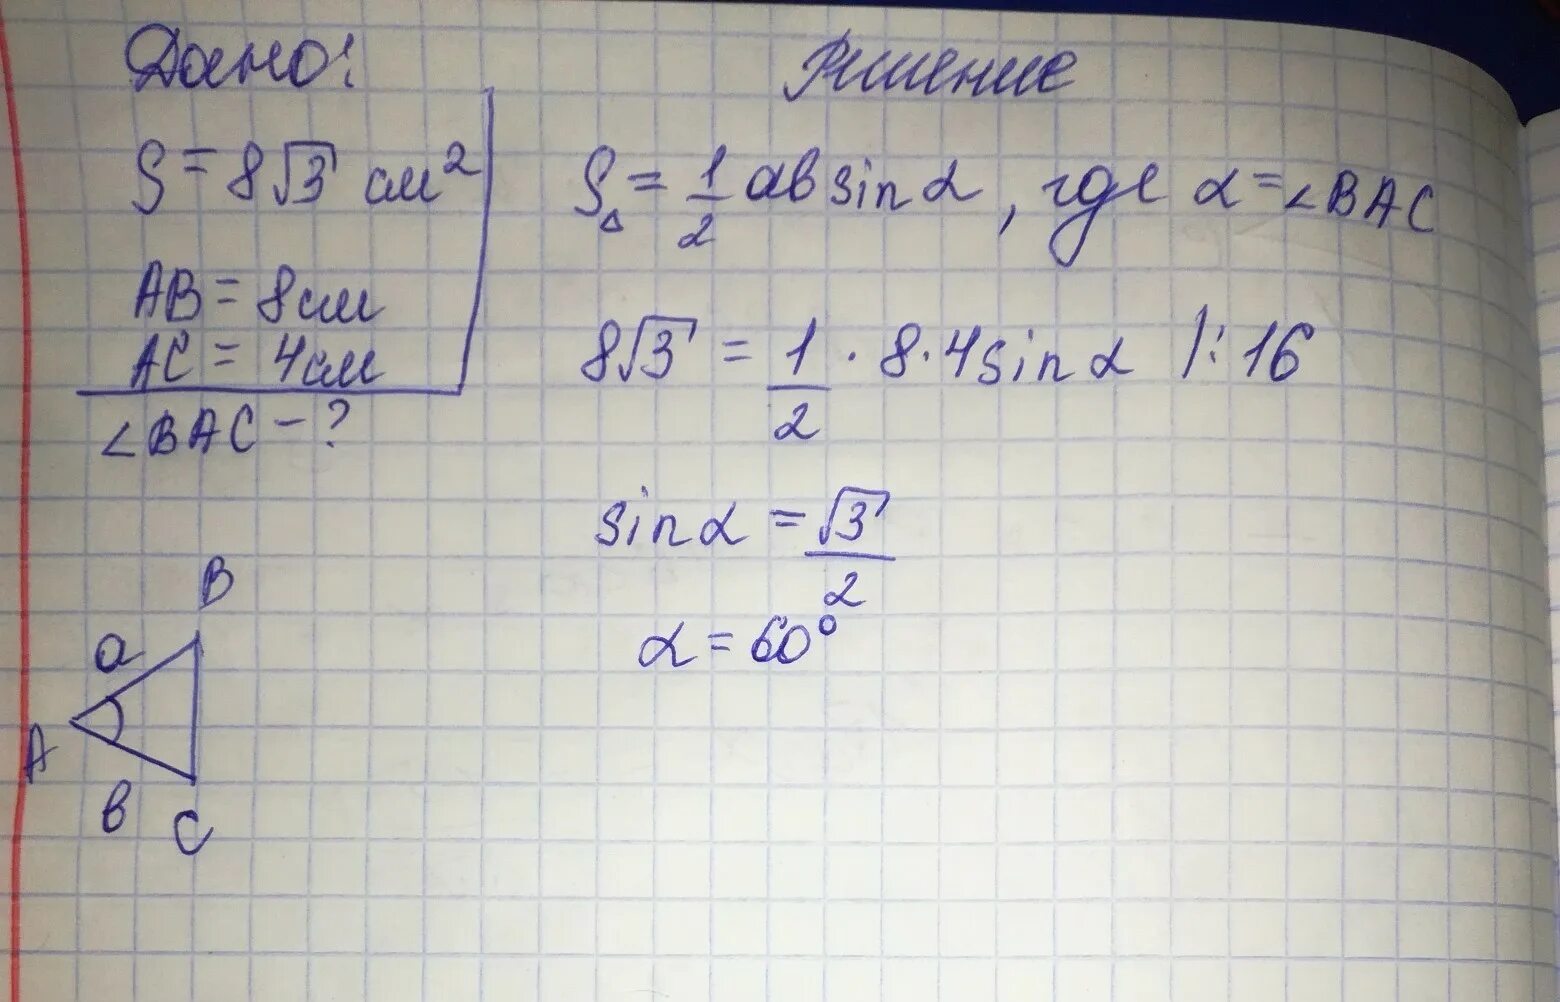 Дано:
S = 8√3 см²
AB = 8см
AC = 4см
∠BAC - ?
Решение
S△ = 1/2 ab sin α, где α = ∠BAC
8√3 = 1/2 · 8 · 4 sin α |: 16
sin α = √3/2
α = 60°
B
a
A
в
C